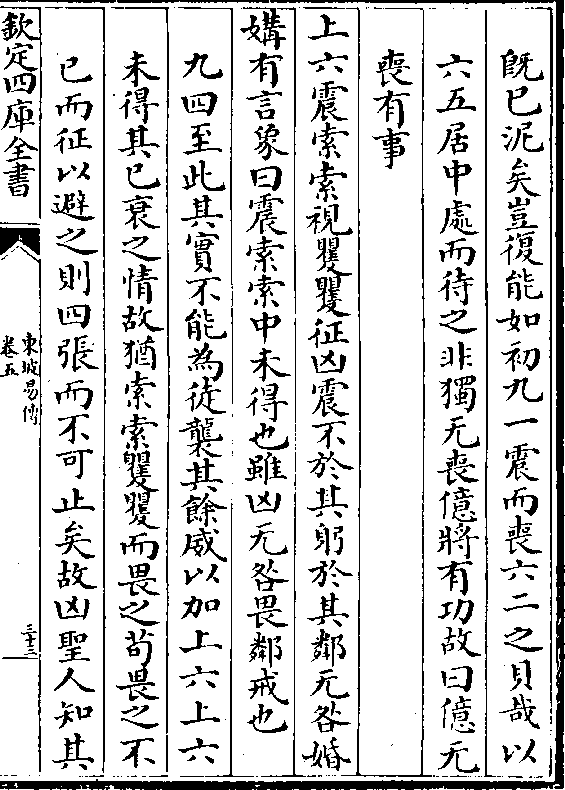 既已泥矣豈復能如初九一震而喪六二之貝哉以
六五居中處而待之非獨无喪億將有功故曰億无
喪有事
上六震索索視矍矍征凶震不於其躬於其鄰无咎婚
媾有言象曰震索索中未得也雖凶无咎畏鄰戒也
九四至此其實不能為徒襲其餘威以加上六上六
未得其已衰之情故猶索索矍矍而畏之苟畏之不
已而征以避之則四張而不可止矣故凶聖人知其
欽定四庫全書
東坡易傳
卷五
三十三